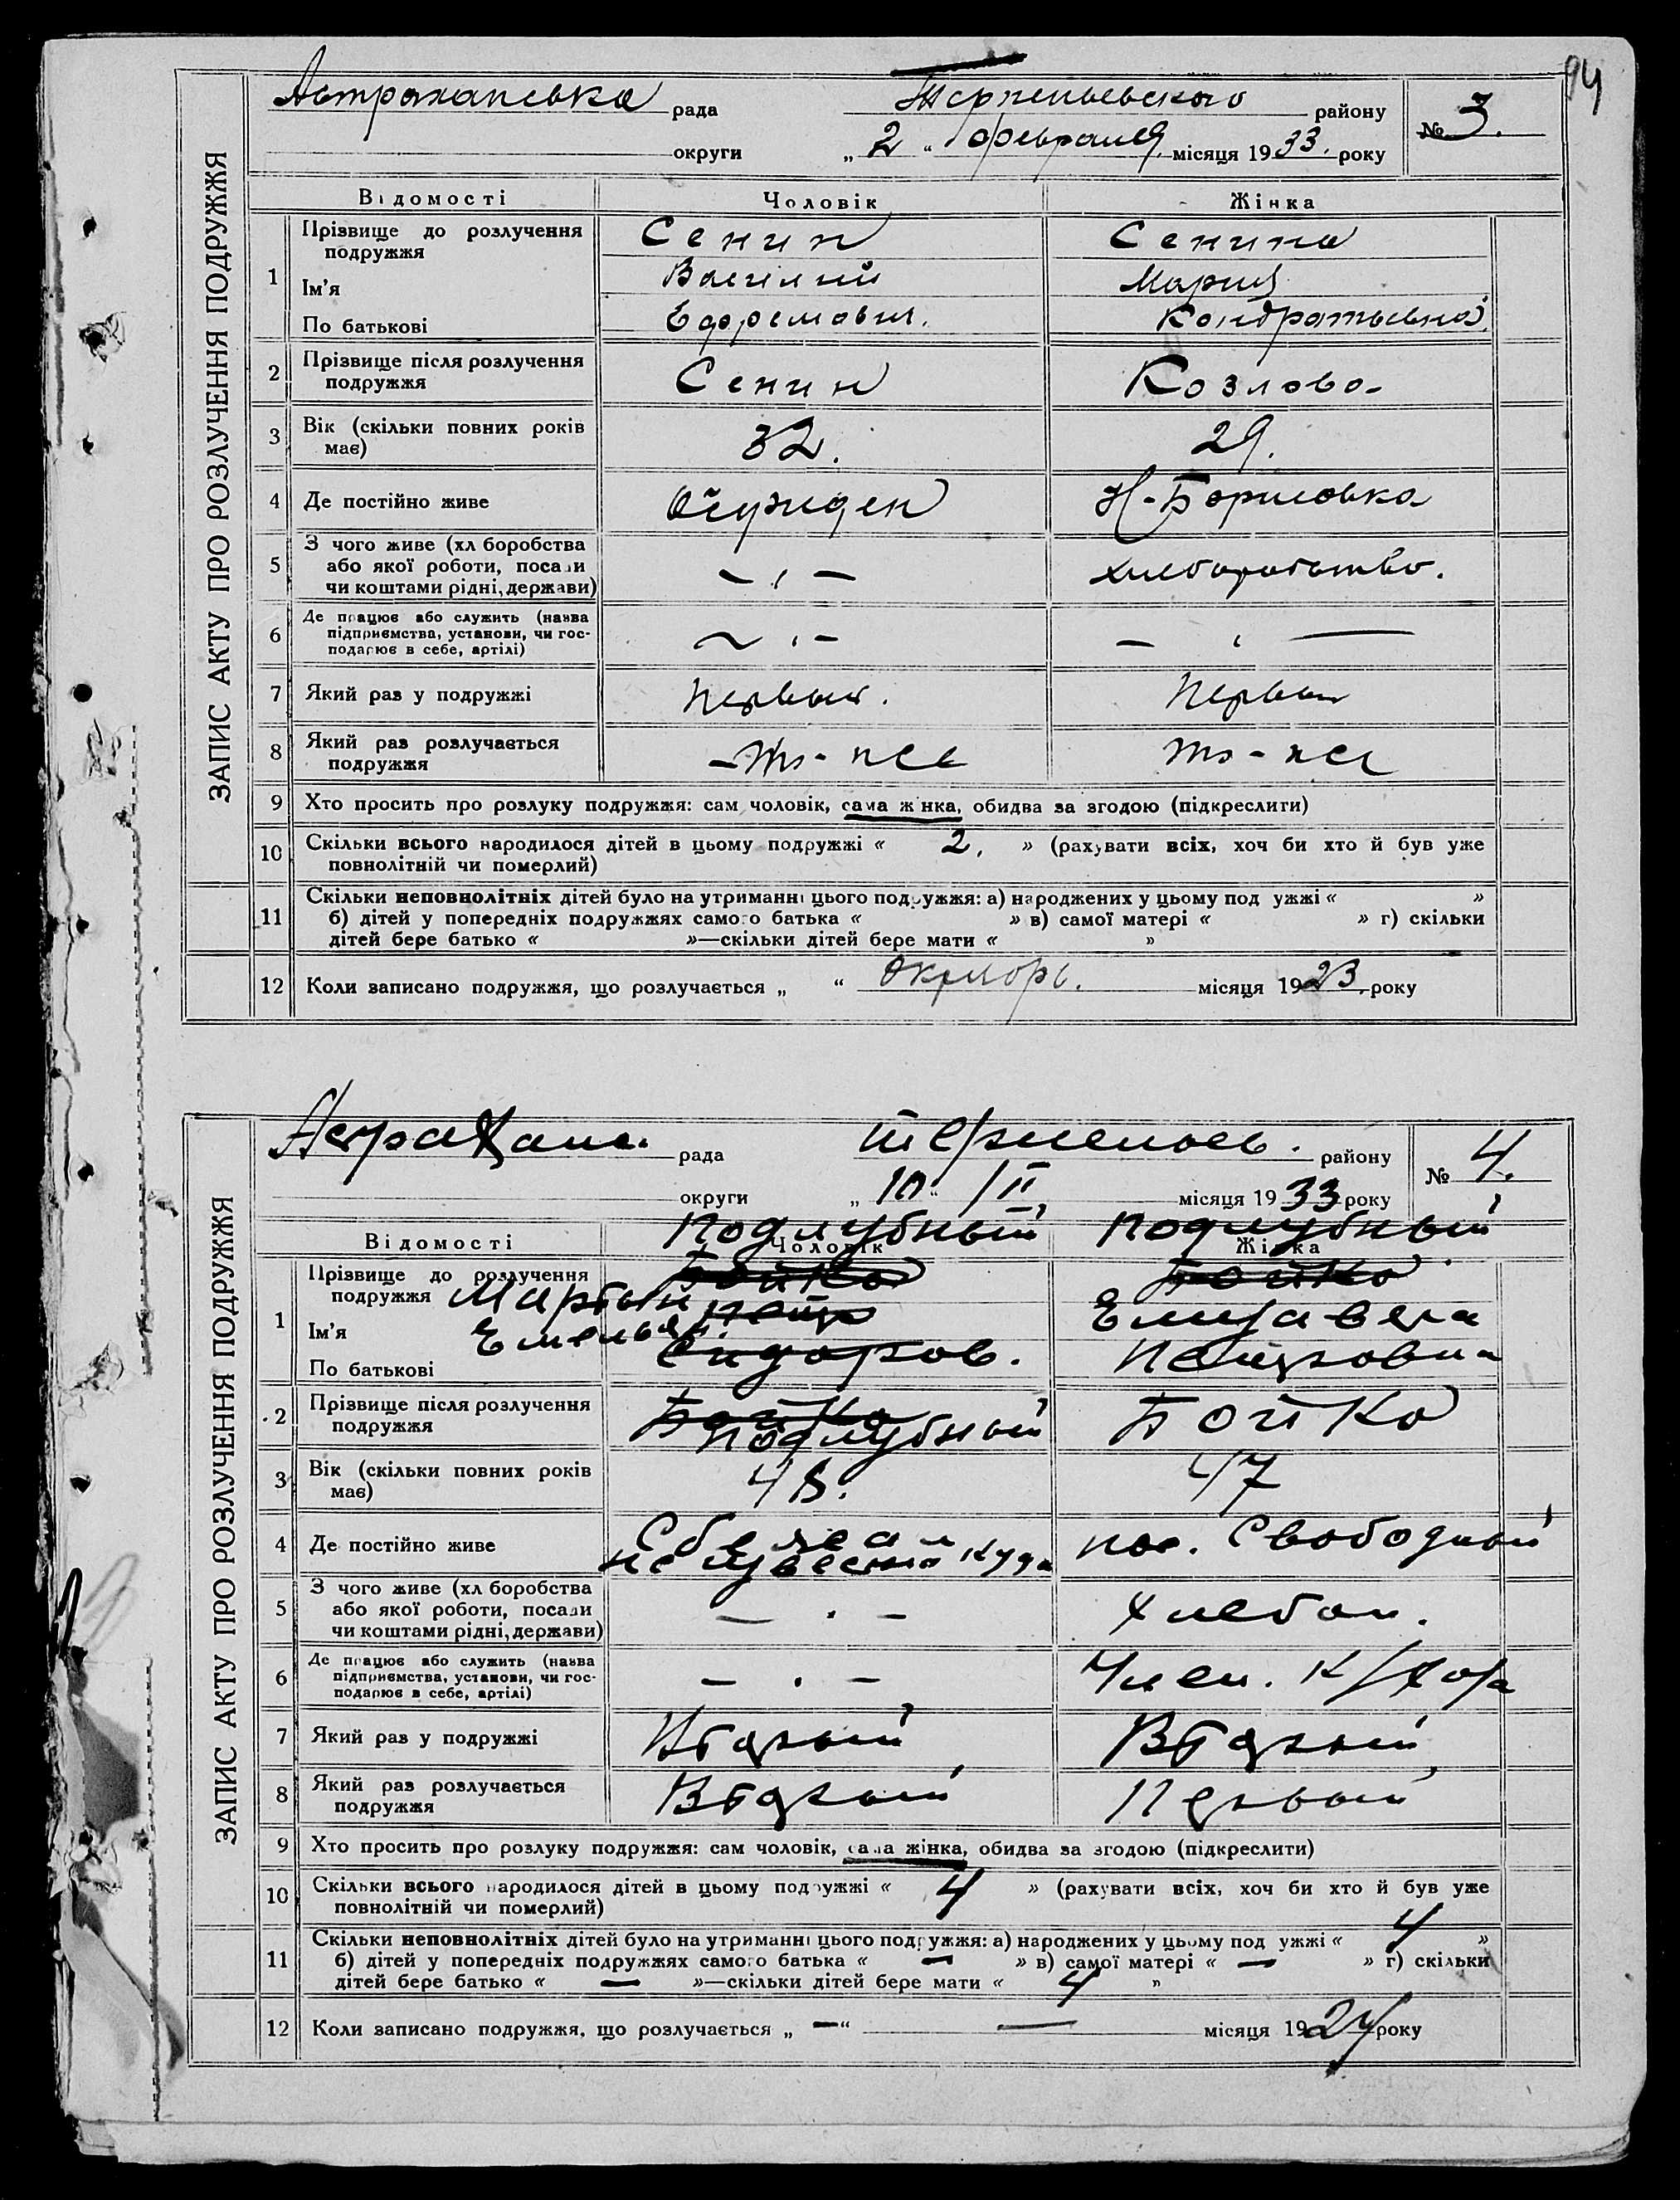 94
ЗАПИС АКТУ ПРО РОЗЛУЧЕННЯ ПОДРУЖЖЯ
Астраханська рада Терпеньевского району № 3.
округи „ 2 “ февраля місяця 1933. року
Відомості Чоловік Жінка
1 Прізвище до розлучення подружжя Сенин Сенина
Ім'я Василий Мария
По батькові Ефремович. Кондратьевна
2 Прізвище після розлучення подружжя Сенин Козлова
3 Вік (скільки повних років має) 32. 29.
4 Де постійно живе Осужден Н-Борисовка
5 З чого живе (хл боробства або якої роботи, посади чи коштами рідні, держави) — , — хлеборобство.
6 Де працює або служить (назва підприємства, установи, чи господарює в себе, артілі) — , — — , —
7 Який раз у подружжі первый. первый
8 Який раз розлучається подружжя — то-же то-же
9 Хто просить про розлуку подружжя: сам чоловік, сама жінка, обидва за згодою (підкреслити)
10 Скільки всього народилося дітей в цьому подружжі « 2. » (рахувати всіх, хоч би хто й був уже
повнолітній чи померлий)
11 Скільки неповнолітніх дітей було на утриманні цього подружжя: а) народжених у цьому под ужжі « »
б) дітей у попередніх подружжях самого батька « » в) самої матері « » г) скільки
дітей бере батько « »—скільки дітей бере мати « »
12 Коли записано подружжя, що розлучається „ “ Октябрь. місяця 1923 року
ЗАПИС АКТУ ПРО РОЗЛУЧЕННЯ ПОДРУЖЖЯ
Астрахан. рада Терпеньев. району № 4.
округи „ 10 “ /II місяця 1933 року
Подлубный Подлубный
Відомості Чоловік Жінка
1 Прізвище до розлучення подружжя Бойко Бойко
Ім'я Мартын Петр Елизавета
По батькові Емельян. Сидоров. Петровна
2 Прізвище після розлучення подружжя Бойко Подлубный Бойко
3 Вік (скільки повних років має) 48. 47
4 Де постійно живе Сбежал неизвестно куда пос. Свободный
5 З чого живе (хл боробства або якої роботи, посади чи коштами рідні, держави) — . — Хлебоп.
6 Де працює або служить (назва підприємства, установи, чи господарює в себе, артілі) — . — Член. к/хоза
7 Який раз у подружжі Второй Второй
8 Який раз розлучається подружжя Второй Первый
9 Хто просить про розлуку подружжя: сам чоловік, сама жінка, обидва за згодою (підкреслити)
10 Скільки всього народилося дітей в цьому подружжі « 4 » (рахувати всіх, хоч би хто й був уже
повнолітній чи померлий)
11 Скільки неповнолітніх дітей було на утриманні цього подружжя: а) народжених у цьому под ужжі « 4 »
б) дітей у попередніх подружжях самого батька « — » в) самої матері « — » г) скільки
дітей бере батько « — »—скільки дітей бере мати « 4 »
12 Коли записано подружжя, що розлучається „ — “ — місяця 1924 року